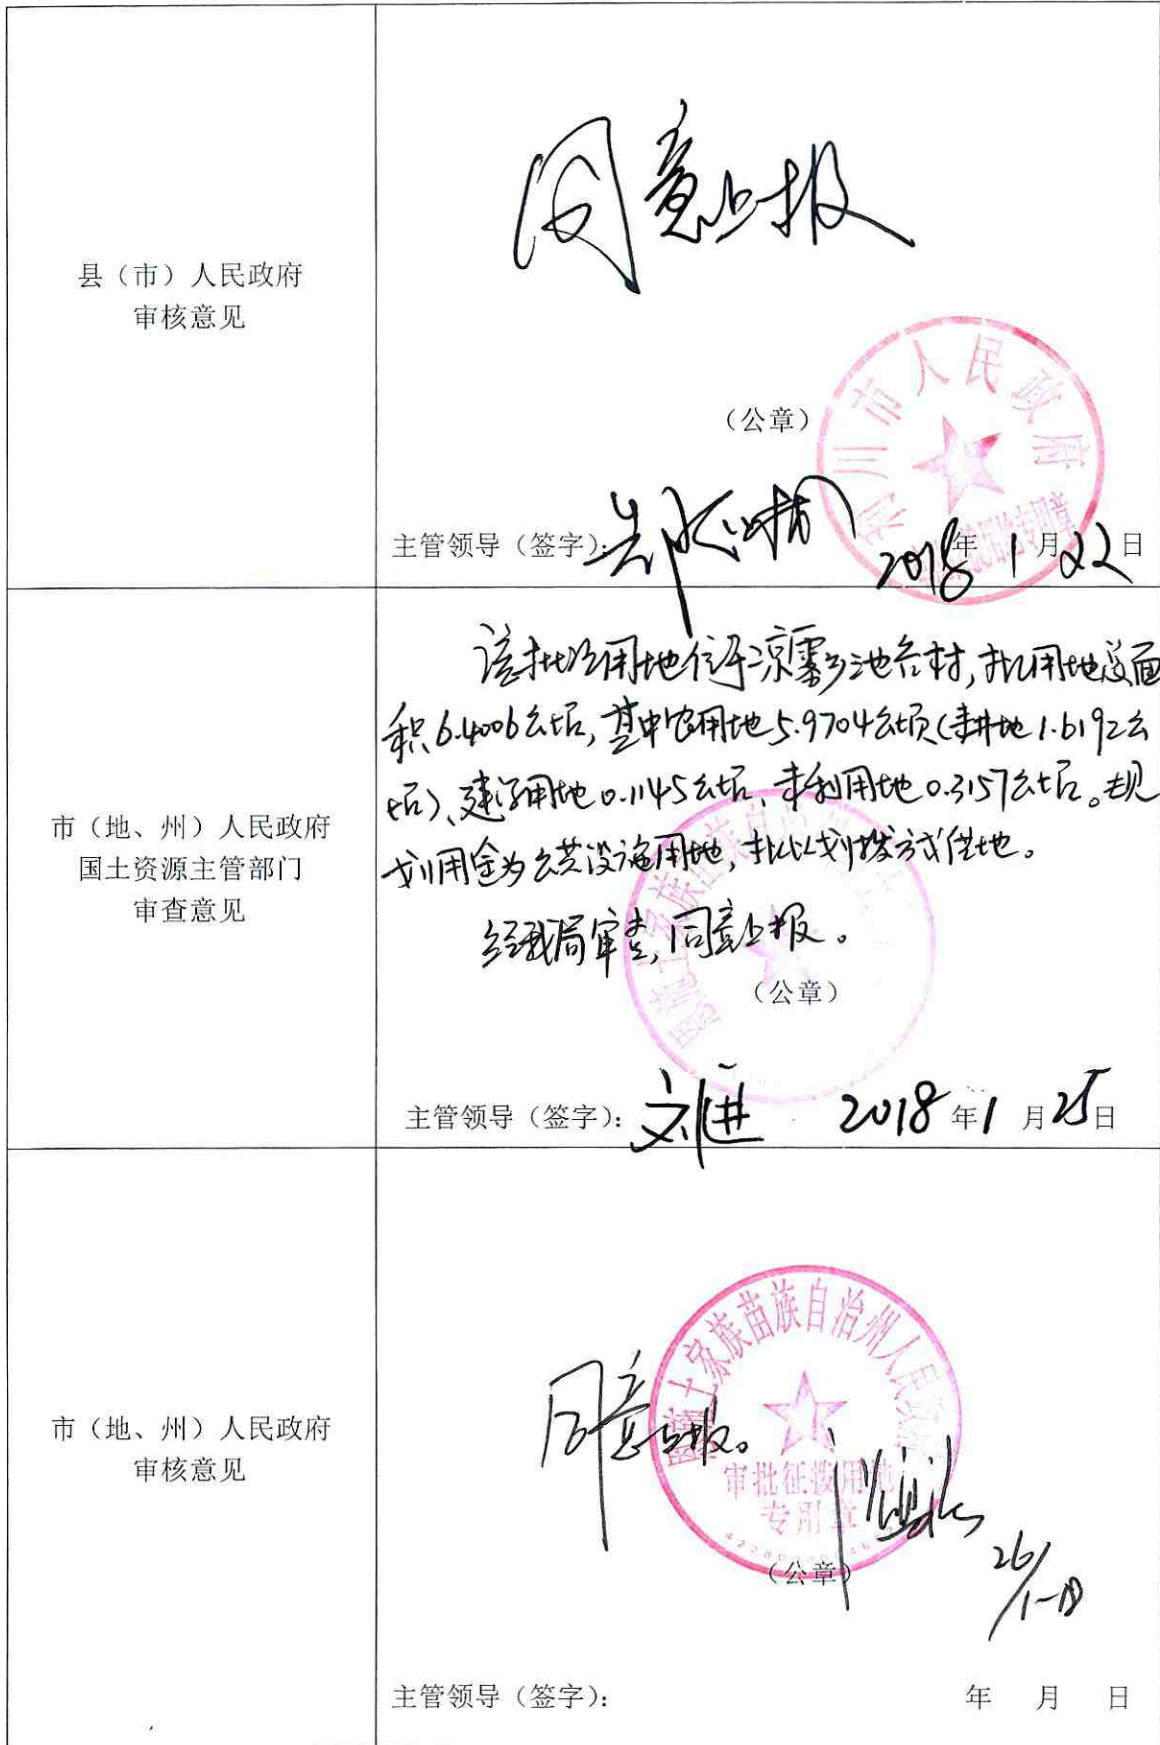 县（市）人民政府
审核意见
同意上报
利川市人民政府
（公章）
主管领导（签字）：
2018年1月22日
市（地、州）人民政府
国土资源主管部门
审查意见
该批次用地位于凉雾乡池谷村，拟用地总面
积6.4006公顷，其中农用地5.9704公顷（耕地1.6192公
顷）、建设用地0.1145公顷、未利用地0.3157公顷。规
划用途为公共设施用地，拟以划拨方式供地。
经我局审查，同意上报。
（公章）
主管领导（签字）：
2018年1月25日
市（地、州）人民政府
审核意见
恩施土家族苗族自治州人民政府
同意上报。
审批征拨用地
专用章
（公章）
26/1-18
主管领导（签字）：
年 月 日